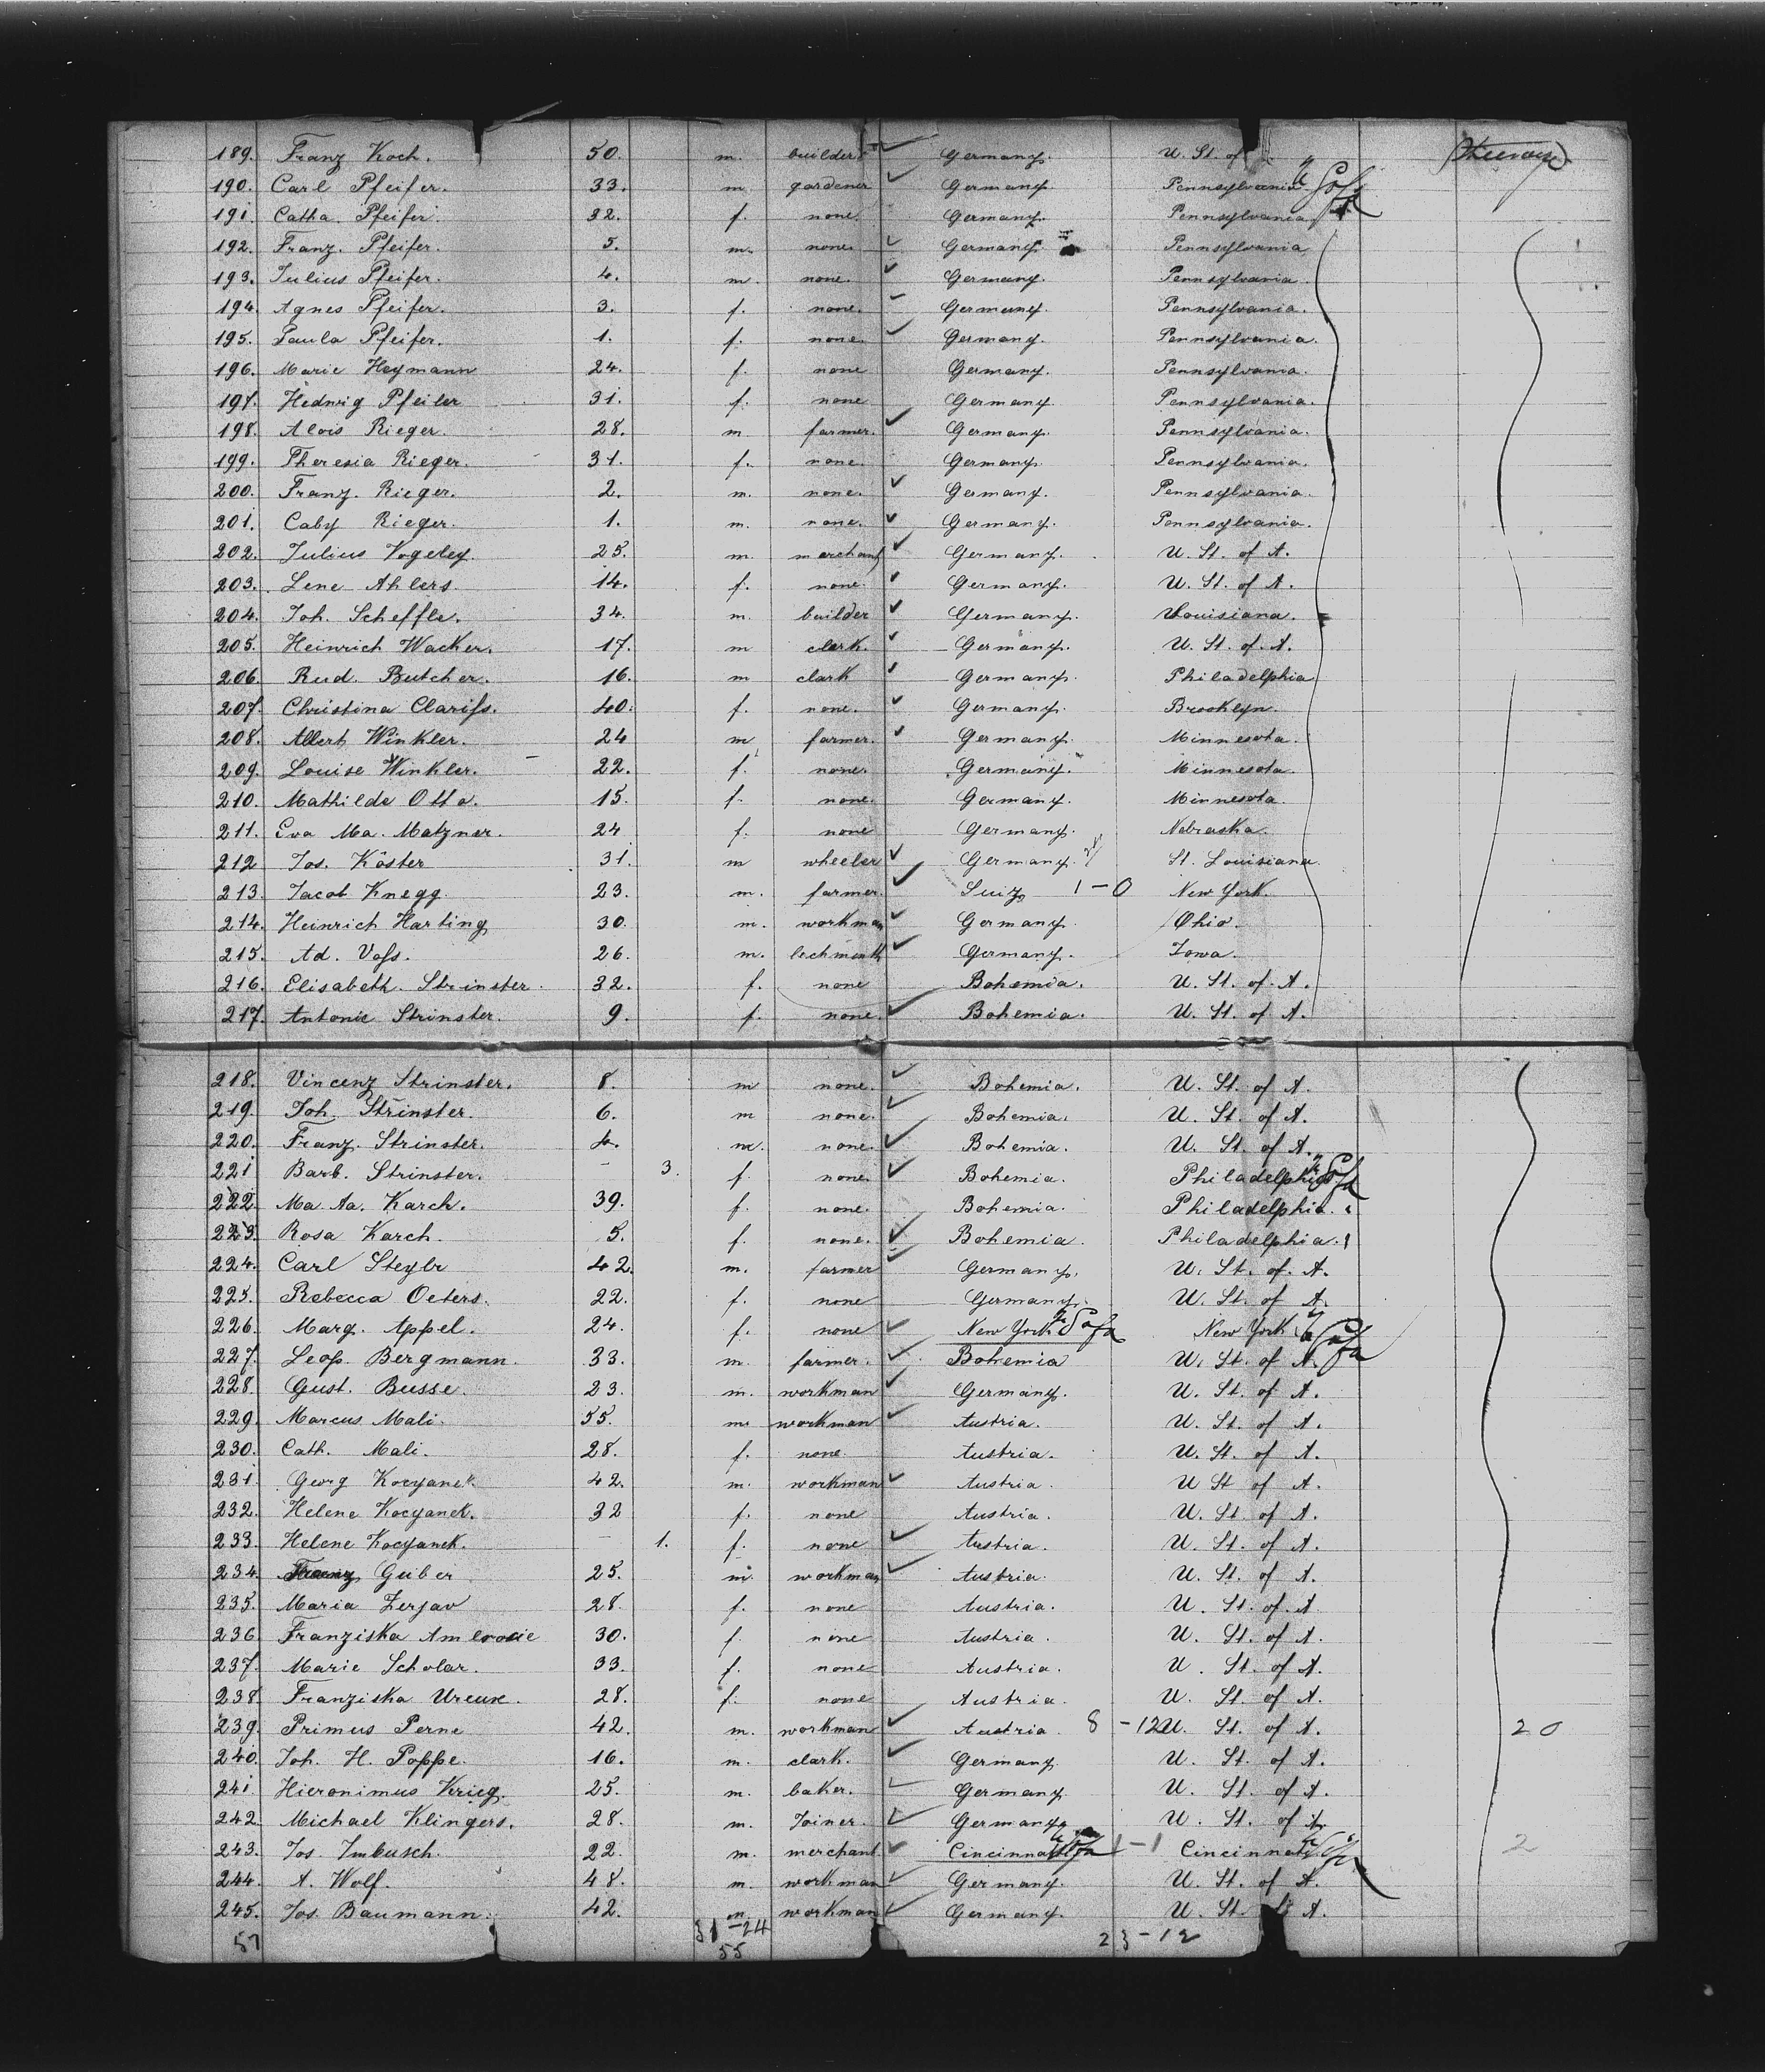 189. Franz Koch. 50. m. builder Germany. U. St. of Steerage
190. Carl Pfeifer. 33. m gardener Germany Pennsylvania
191. Catha. Pfeifer. 32. f. none. Germany. Pennsylvania
192. Franz. Pfeifer. 5. m. none. Germany. Pennsylvania
193. Julius Pfeifer. 4. m. none. Germany. Pennsylvania.
194. Agnes Pfeifer. 3. f. none. Germany. Pennsylvania.
195. Paula Pfeifer. 1. f. none. Germany. Pennsylvania.
196. Marie Heymann 24. f. none Germany. Pennsylvania.
197. Hedwig Pfeiler 31. f. none Germany. Pennsylvania.
198. Alois Rieger. 28. m. farmer. Germany. Pennsylvania.
199. Theresia Rieger. 31. f. none. Germany. Pennsylvania.
200. Franz. Rieger. 2. m. none. Germany. Pennsylvania.
201. Caby Rieger. 1. m. none. Germany. Pennsylvania.
202. Julius Vogeley. 25. m. merchant Germany. U. St. of A.
203. Lene Ahlers. 14. f. none. Germany. U. St. of A.
204. Joh. Scheffle. 34. m. builder Germany. Louisiana.
205. Heinrich Wacker. 17. m clerk. Germany. U. St. of A.
206. Rud. Butcher. 16. m clark Germany. Philadelphia
207. Christina Clarifs. 40. f. none. Germany. Brooklyn.
208. Albert Winkler. 24 m farmer. Germany. Minnesota.
209. Louise Winkler. 22. f. none. Germany. Minnesota.
210. Mathilde Otto. 15. f. none. Germany. Minnesota.
211. Eva Ma. Matzner. 24 f. none Germany. Nebraska.
212 Jos. Köster 31. m wheeler Germany. St. Louisiana.
213. Jacob Knegg. 23. m. farmer. Suiz 1-0 New York.
214. Heinrich Harting 30. m. workman Germany. Ohio.
215. Ad. Vofs. 26. m. Germany. Iowa.
216. Elisabeth. Strinster. 32. f. none Bohemia. U. St. of A.
217. Antonie Strinster. 9. f. none. Bohemia. U. St. of A.
218. Vincenz Strinster. 8. m none. Bohemia. U. St. of A.
219. Joh. Strinster. 6. m none. Bohemia. U. St. of A.
220. Franz. Strinster. 4. m. none. Bohemia. U. St. of A.
221 Barb. Strinster. - 3. f. none. Bohemia. Philadelphia
222. Ma. Aa. Karch. 39. f. none. Bohemia. Philadelphia.
223. Rosa Karch. 5. f. none. Bohemia. Philadelphia.
224. Carl Steylr 42. m. farmer Germany. U. St. of A.
225. Rebecca Oeters. 22. f. none Germany. U. St. of A.
226. Marg. Appel. 24. f. none New York New York
227. Leop. Bergmann. 33. m. farmer. Bohemia U. St. of A.
228. Gust. Busse. 23. m. workman Germany. U. St. of A.
229. Marcus Mali. 55. m. workman Austria. U. St. of A.
230. Cath. Mali. 28. f. none. Austria. U. St. of A.
231. Georg Kocyanek. 42. m. workman Austria. U St of A.
232. Helene Kocyanek. 32 f. none Austria. U. St. of A.
233. Helene Kocyanek. - 1. f. none Austria. U. St. of A.
234. Franz Guber 25. m. workman Austria. U. St. of A.
235. Maria Zerjav 28. f. none Austria. U. St. of A.
236. Franziska 30. f. none Austria. U. St. of A.
237. Marie Scholar. 33. f. none Austria. U. St. of A.
238. Franziska 28. f. none Austria. U. St. of A.
239. Primus Perne 42. m. workman Austria. 8 -12 U. St. of A. 20
240. Joh. H. Poppe. 16. m. clark. Germany. U. St. of A.
241. Hieronimus Krieg. 25. m. baker. Germany. U. St. of A.
242. Michael Klingers. 28. m. Joiner. Germany. U. St. of A.
243. Jos. Imbusch. 22. m. merchant. Cincinnati 1-1 Cincinnati 2
244. A. Wolf. 48. m. workman Germany. U. St. of A.
245. Jos. Baumann. 42. m. workman Germany. U. St. of A.
57 31-24 23-12
55